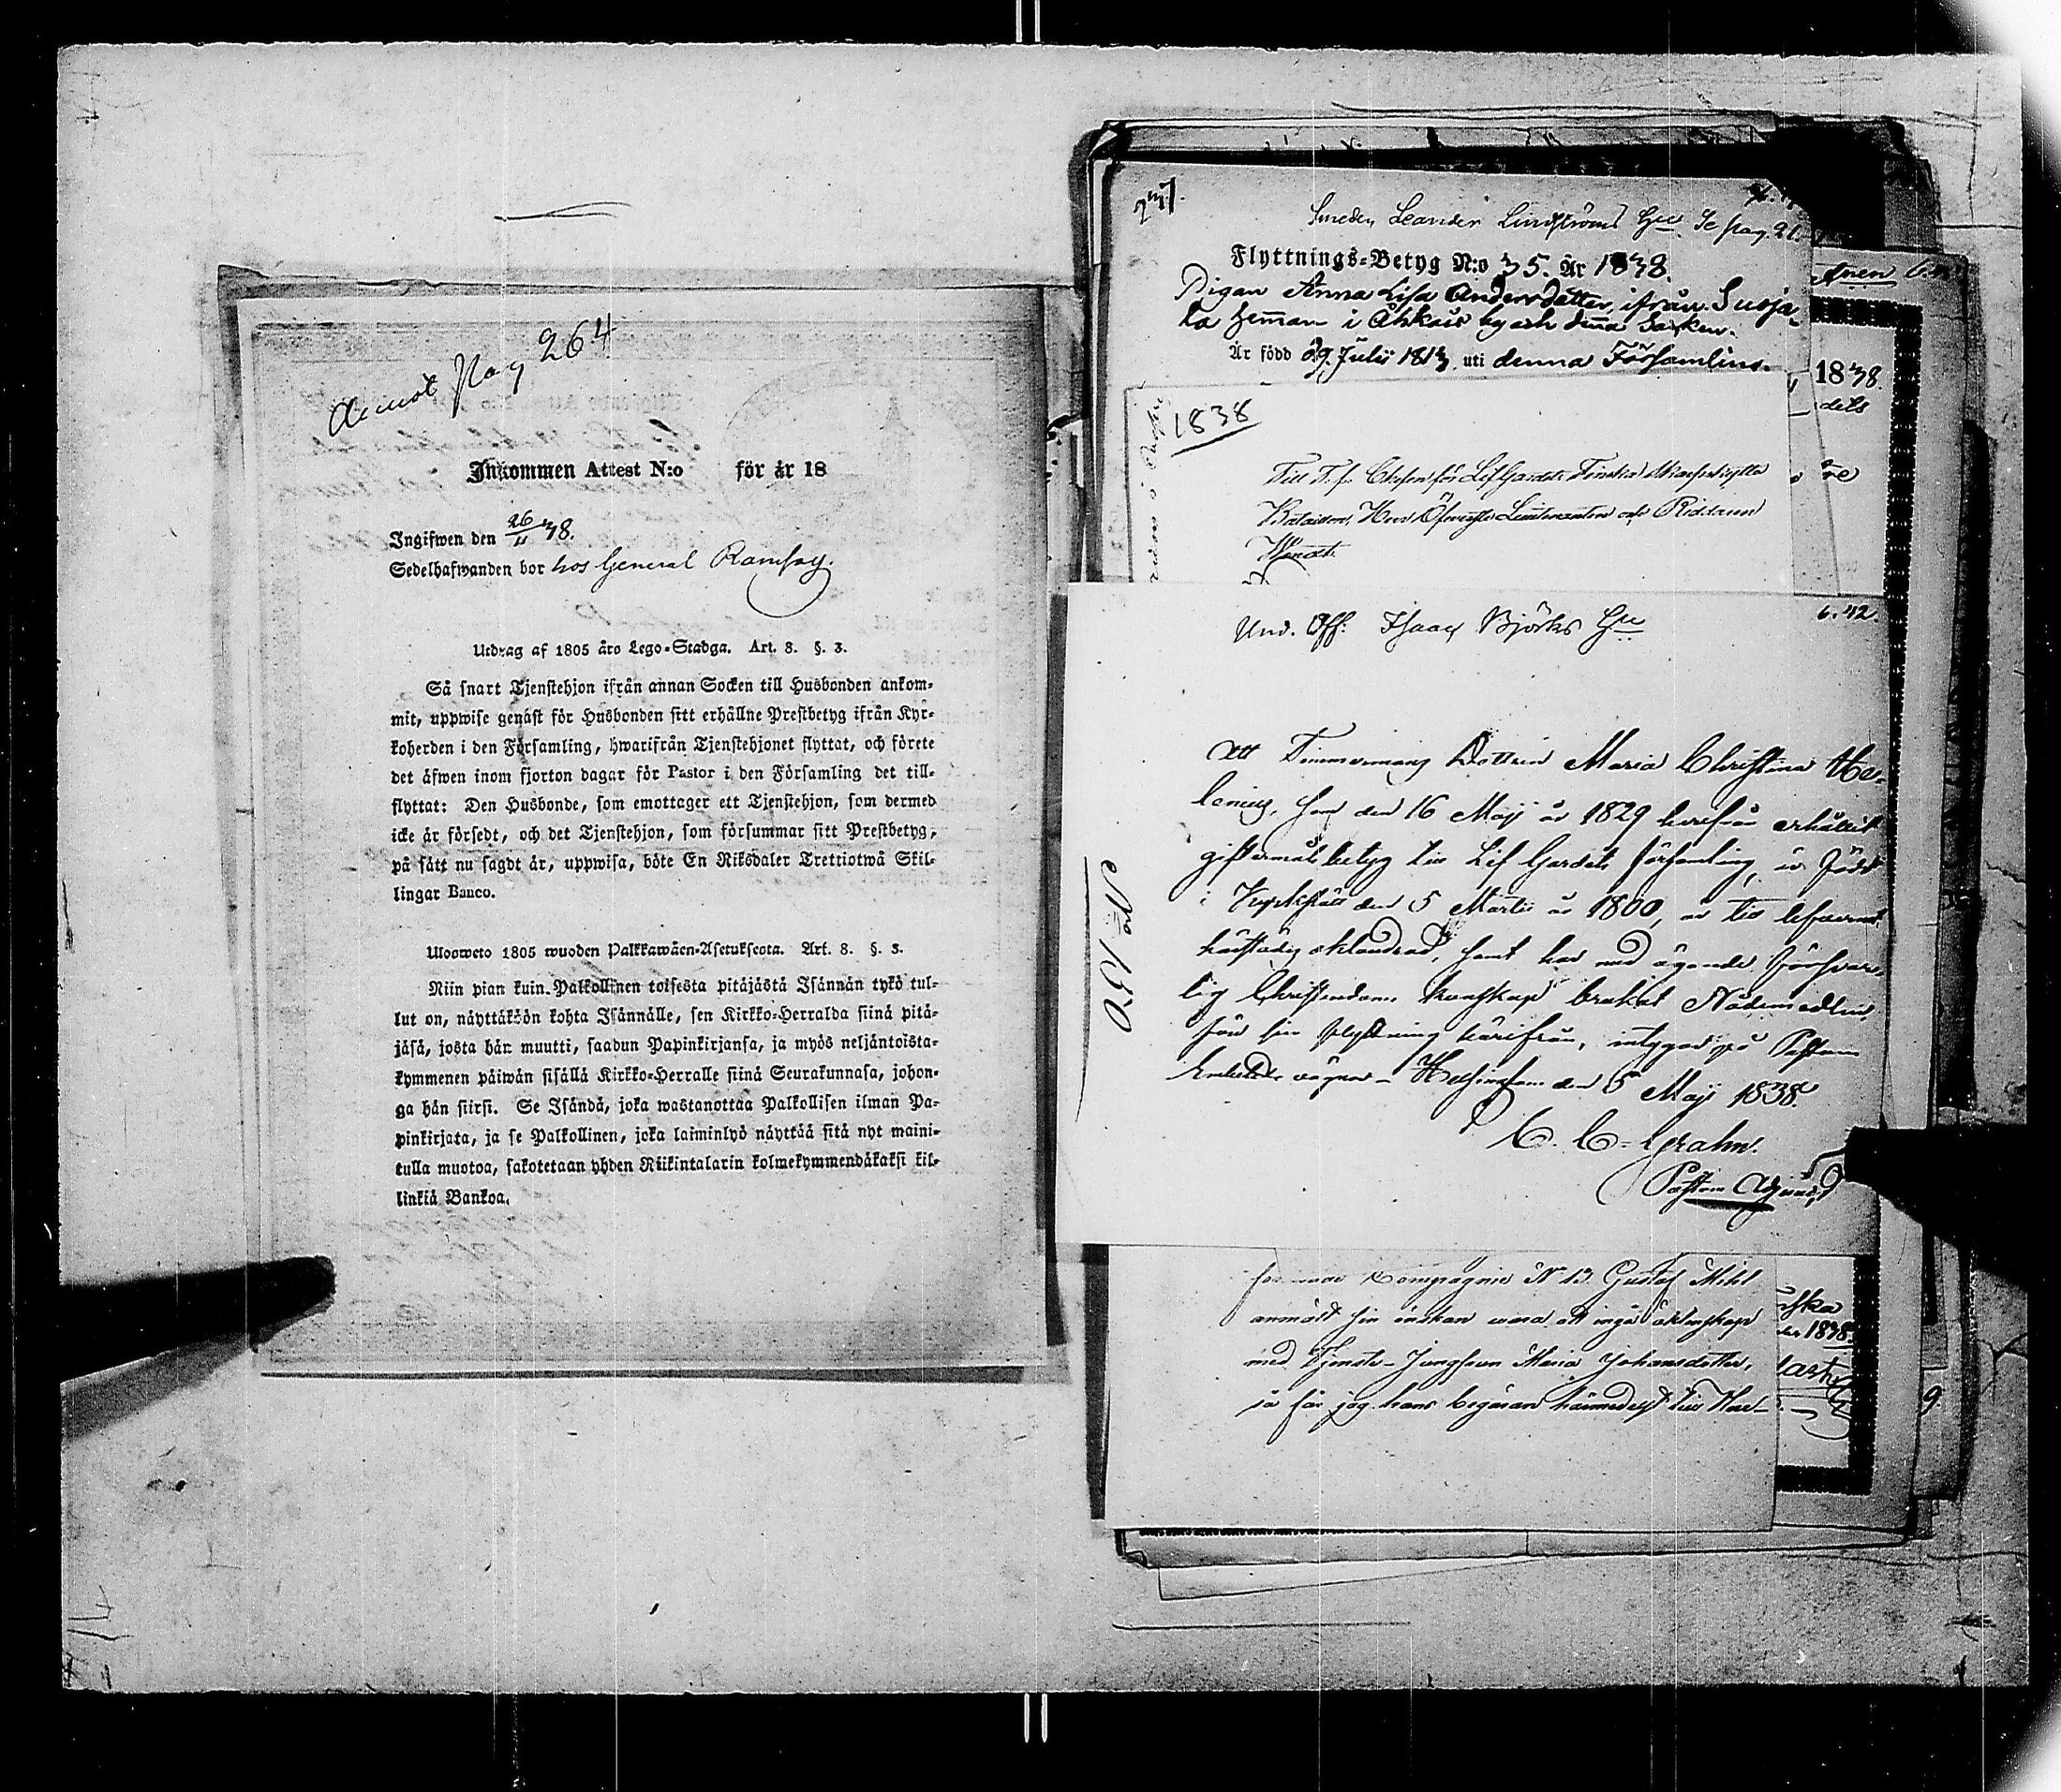 Pag 264
Inkommen Attest N:o för år 18
Ingifwen den 26/11 38.
Sedelhafwanden bor hos General Ramsay.
Utdrag af 1805 års Lego-Stadga. Art. 8. §. 3.
Så snart Tjenstehjon ifrån annan Socken till Husbonden ankom-
mit, uppwise genäst för Husbonden sitt erhållne Prestbetyg ifrån Kyr-
koherden i den Församling, hwarifrån Tjenstehjonet flyttat, och förete
det äfwen inom fjorton dagar för Pastor i den Församling det till-
flyttat: Den Husbonde, som emottager ett Tjenstehjon, som dermed
icke är försedt, och det Tjenstehjon, som försummar sitt Prestbetyg,
på sätt nu sagdt är, uppwisa, böte En Riksdaler Trettiotwå Skil-
lingar Banco.
Ulosweto 1805 wuoden Palkkawäen-Asetuksesta. Art. 8. §. 3.
Niin pian kuin Palkollinen toisesta pitäjästä Isännän tykö tul-
lut on, näyttäköön kohta Isännälle, sen Kirkko-Herralda siinä pitä-
jäsä, josta hän muutti, saadun Papinkirjansa, ja myös neljäntoista-
kymmenen päiwän sisällä Kirkko-Herralle siinä Seurakunnasa, johon-
ga hän siirsi. Se Isändä, joka wastanottaa Palkollisen ilman Pa-
pinkirjata, ja se Palkollinen, joka laiminlyö näyttää sitä nyt maini-
tulla muotoa, sakotetaan yhden Riikintalarin kolmekymmendäkaksi kil-
linkiä Bankoa.
237.
Smeden Leander Lindströms Se pag. 21.
Flyttnings-Betyg N:o 35. År 1838.
Pigan Anna Lisa Andersdotter ifrån Suoja-
la i by och denna Socken.
Är född 29 Julii 1813 uti denna Församling.
1838.
1838
Till T. f. Chefen för Lif Gardets Finska Skarpskytte
Bataillon, Herr Öfverste Lieutenanten och Riddaren
Und. Off. Isaac Björks 6.42.
Att Timmermans Dottren Maria Christina He-
lenius, som den 16 Maji år 1829 herifrån erhållit
giftermåls betyg till Lif Gardets församling, är född
i Kyrkslätt den 5 Martii år 1800, är till lefvernet
samt har med ägande försvar-
lig Christendoms kunskap brukat Nådemedlen
för sin flyttning härifrån, intygar på Pastors
Embetets vägnar - Helsingfors den 5 Maji 1838.
C. C. Grahn.
Pastors Adjunct
No 150
Compagnie N 13 Gustaf
anmält sin önskan vara att ingå äktenskap
med Tjenste-Jungfrun Maria Johansdotter,
så får jag hans begäran härmedelst
1838.
9.